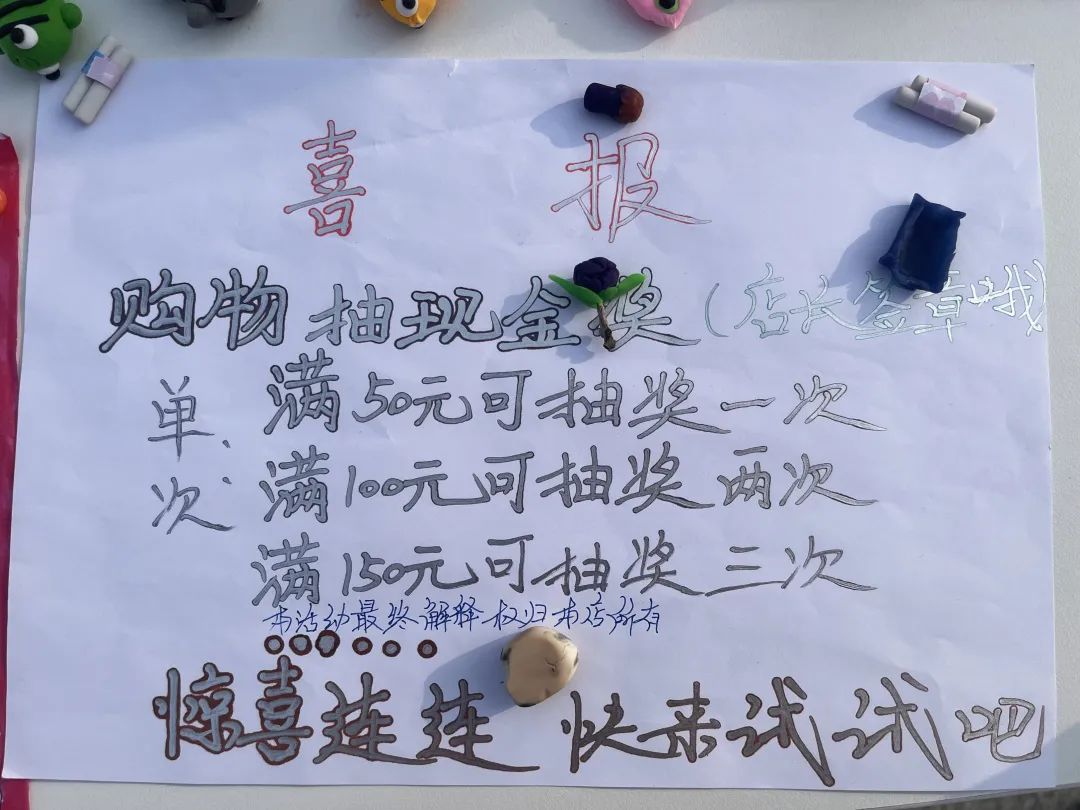 喜报
购物抽现金奖(店长签章哦)
单次
满50元可抽奖一次
满100元可抽奖两次
满150元可抽奖三次
本活动最终解释权归本店所有
惊喜连连 快来试试吧